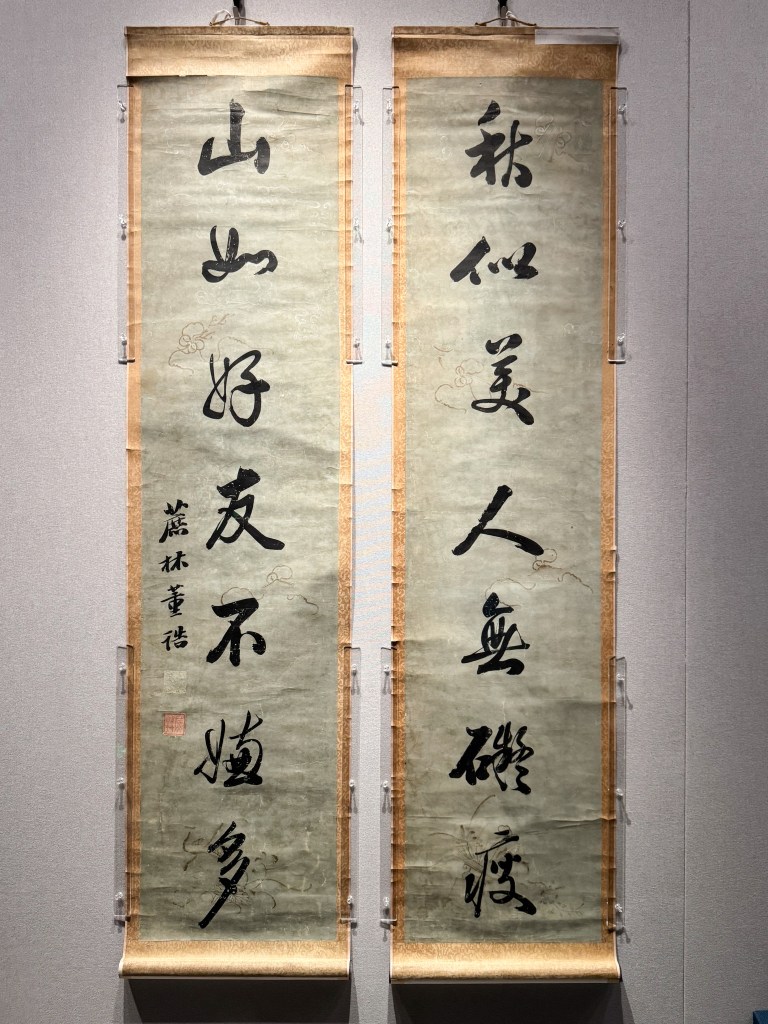 秋似美人無礙瘦
山如好友不嫌多
蔗林董誥